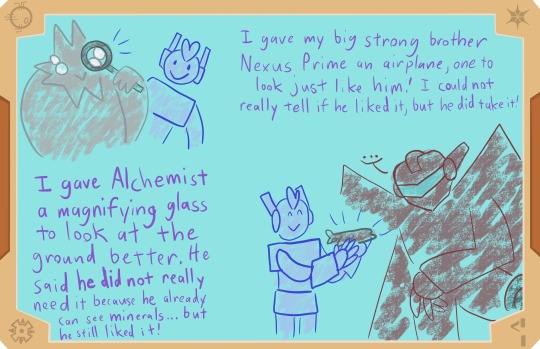 I gave my big strong brother
Nexus Prime an airplane, one to
look just like him! I could not
really tell if he liked it, but he did take it!
I gave Alchemist
a magnifying glass
to look at the
ground better. He
said he did not really
need it because he already
can see minerals... but
he still liked it!